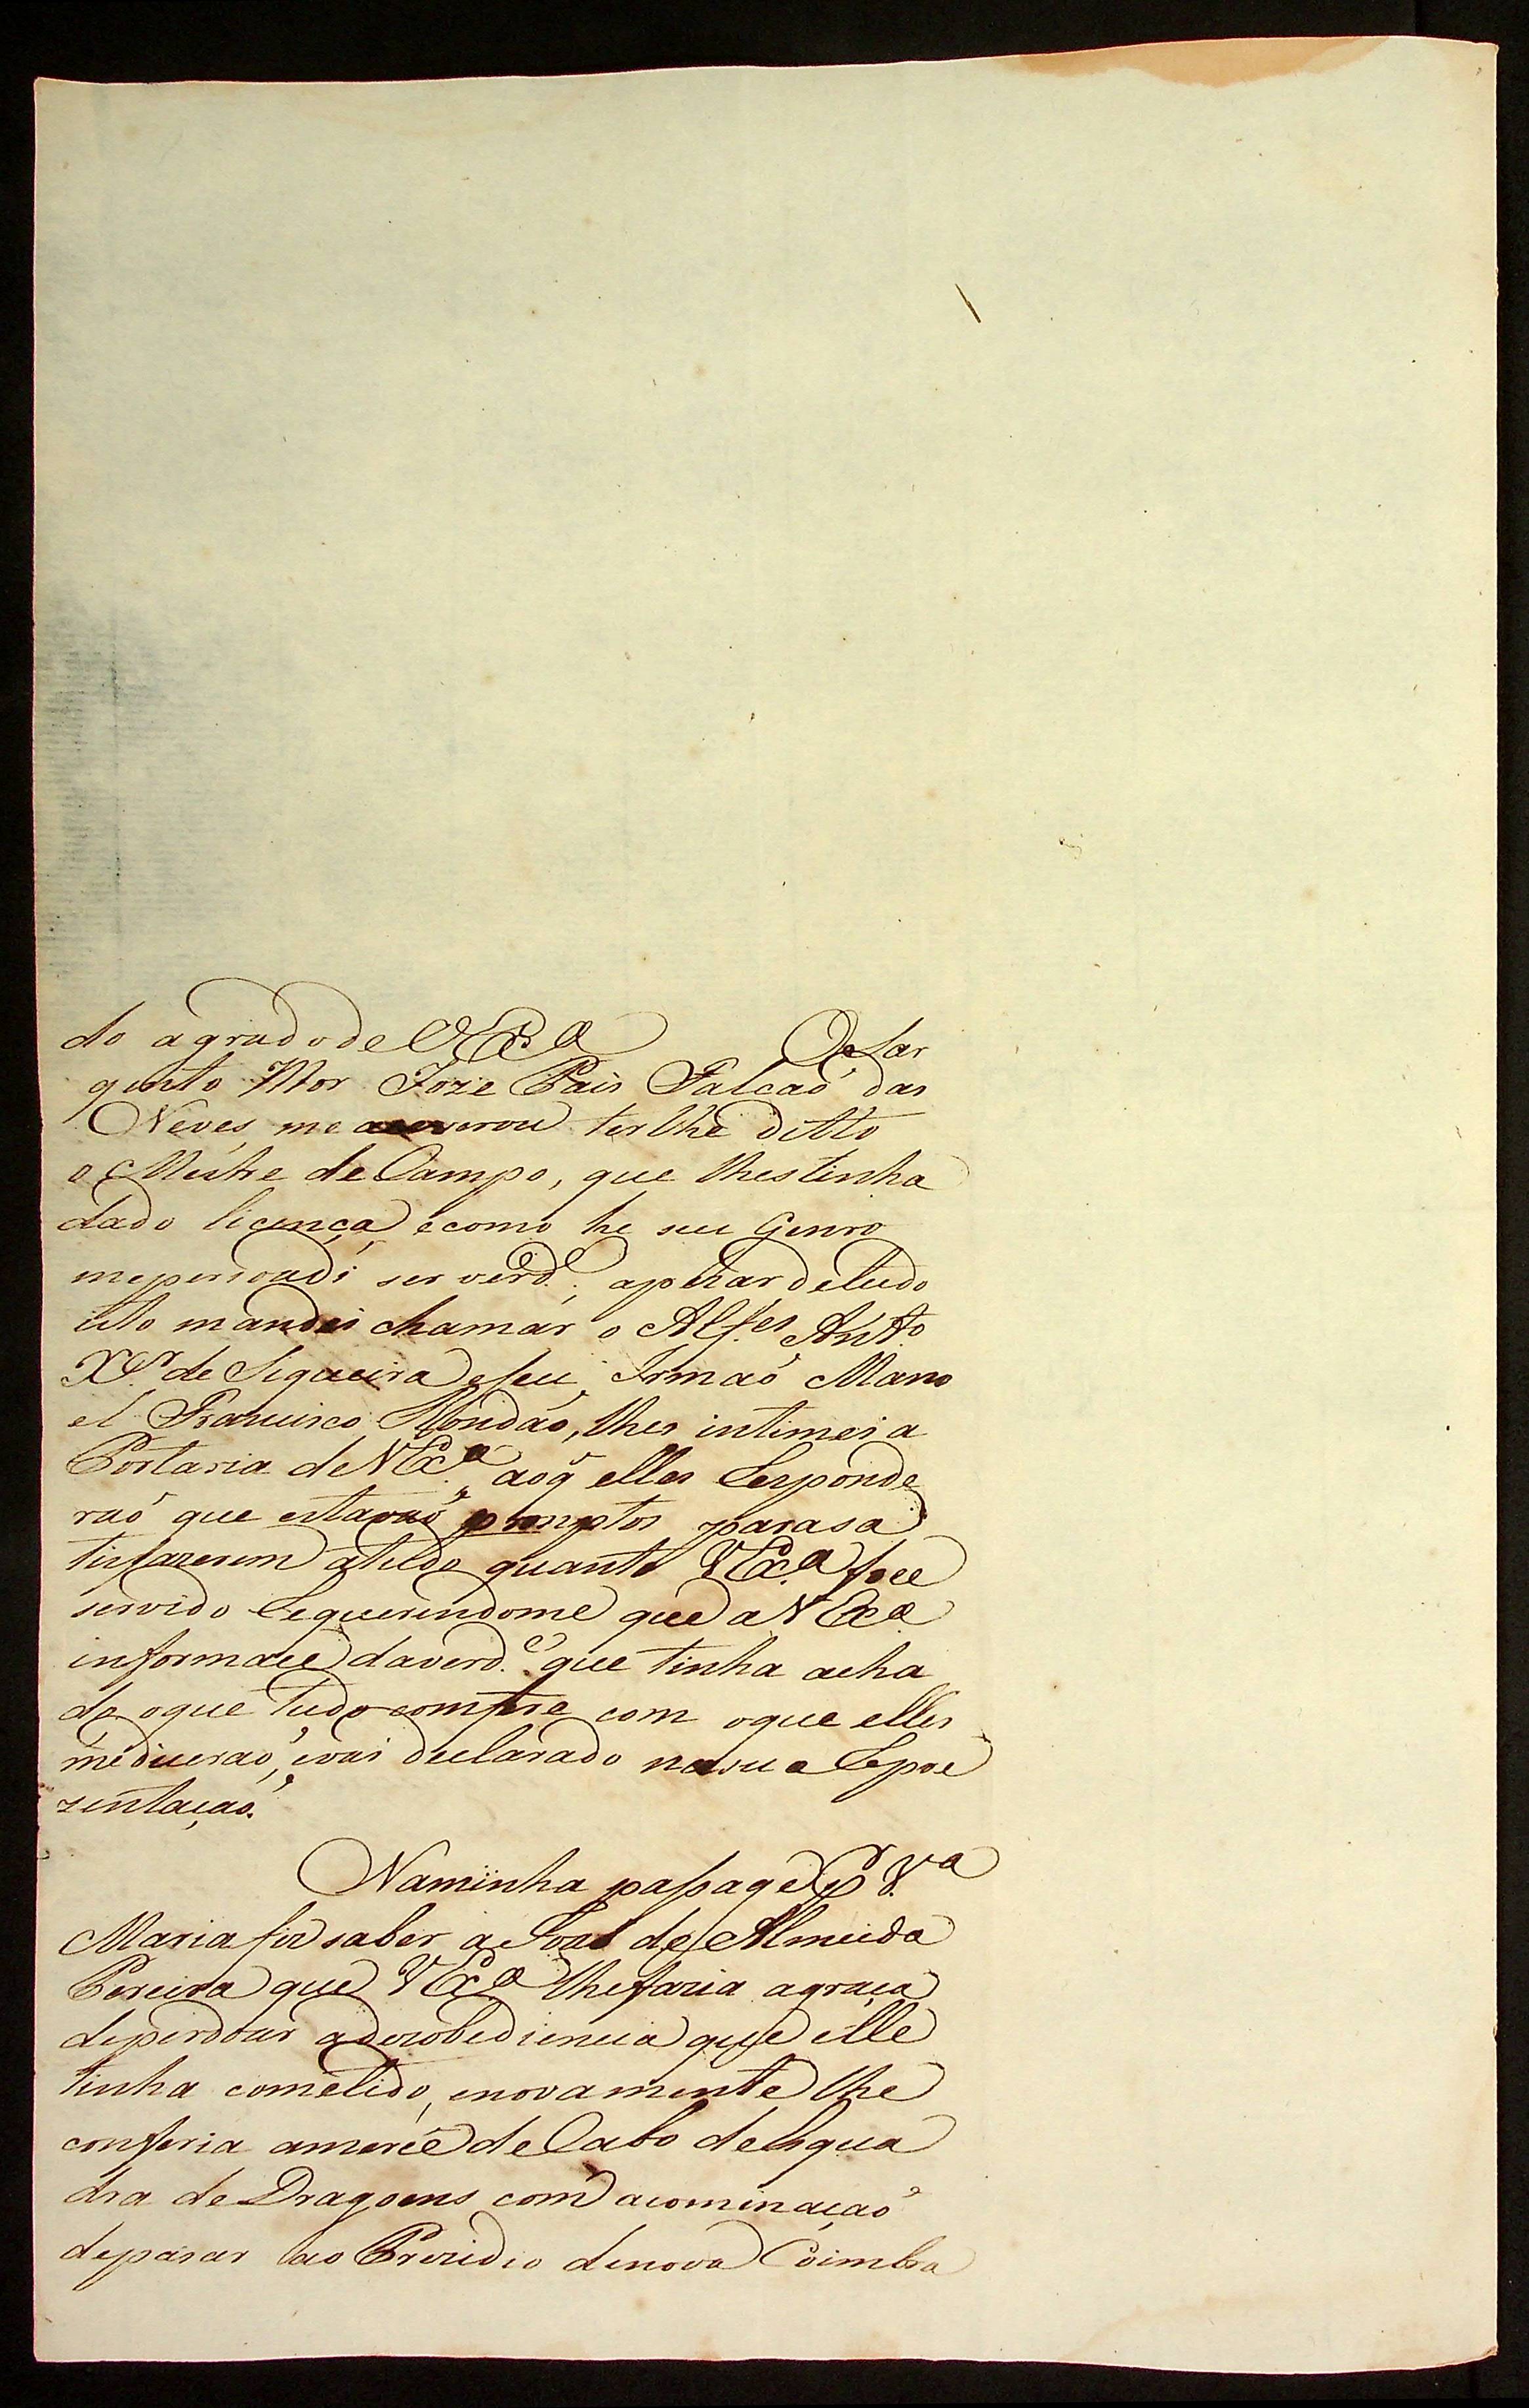 do agrado de VExª O Sar
gento Mor Joze Pais Falcaõ das
Neves, me aceverou ter lhe ditto
o Mestre de Campo, que lhes tinha
dado licença, e como he seu Genro
me persoadi ser verd.e, apezar de tudo
isto mandei chamar o Alf.es Ant.o
X.er de Siqueira e seu Irmaõ Mano
el Francisco Rondaõ, lhes intimei a
Portaria de VEx.ª, ao q̃ elles Responde
raõ que estavaõ promptos para sa
tisfazerem a tudo quanto VEx.ª foce
servido Requerendome que a VExª
informace da verd.e que tinha acha
do, o que tudo comfere com o que elles
me diceraõ, e vai declarado na sua Repre
zentaçaõ.
Na minha passagẽ p.r V.ª
Maria fiz saber a Joaõ de Almeida
Pereira que VExª lhe fazia a graça
de perdoar a dezobediencia que elle
tinha cometido, e novamente lhe
conferia a mercê de Cabo de Esqua
dra de Dragoens com a cominaçaõ
de pasar ao Prezidio de nova Coimbra